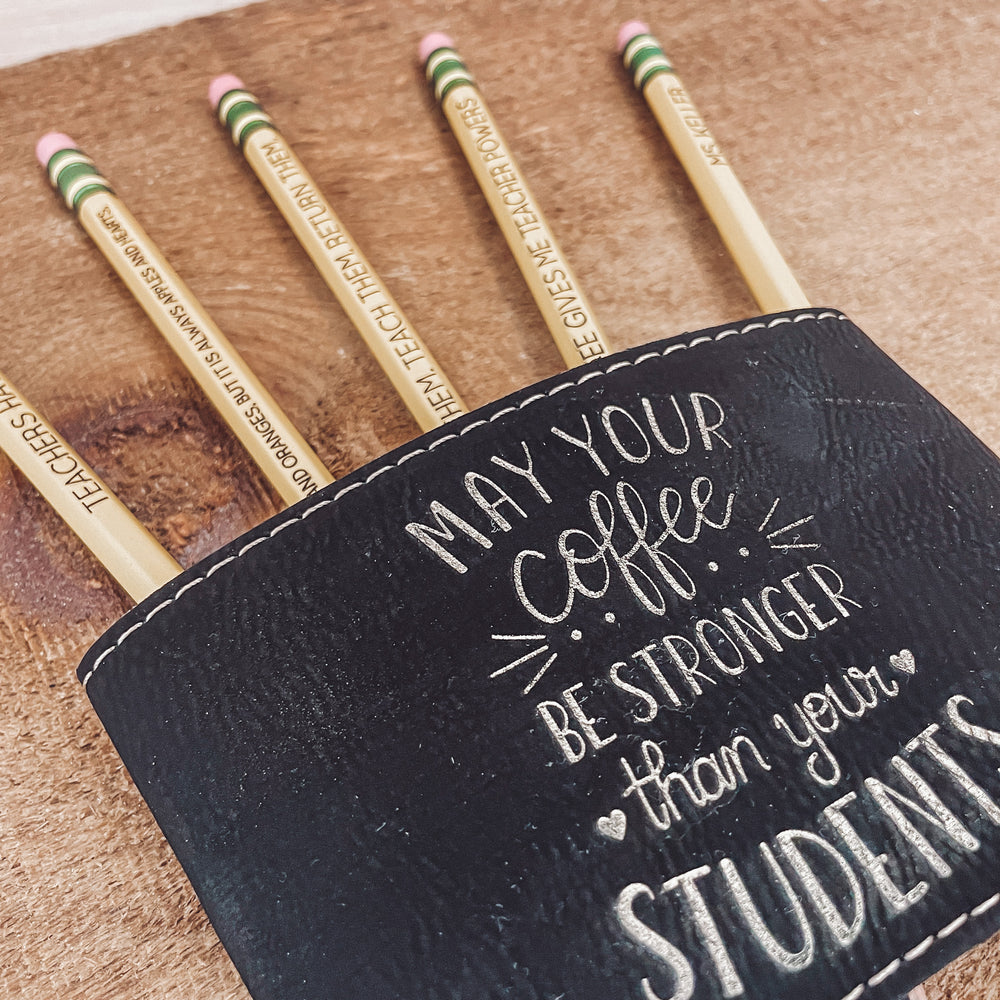 TEACHERS
AND ORANGES, BUT IT IS ALWAYS APPLES AND HEARTS.
THEM. TEACH THEM. RETURN THEM
GIVES ME TEACHER POWERS
MS. KELLER
MAY YOUR
coffee
BE STRONGER
than your
STUDENTS